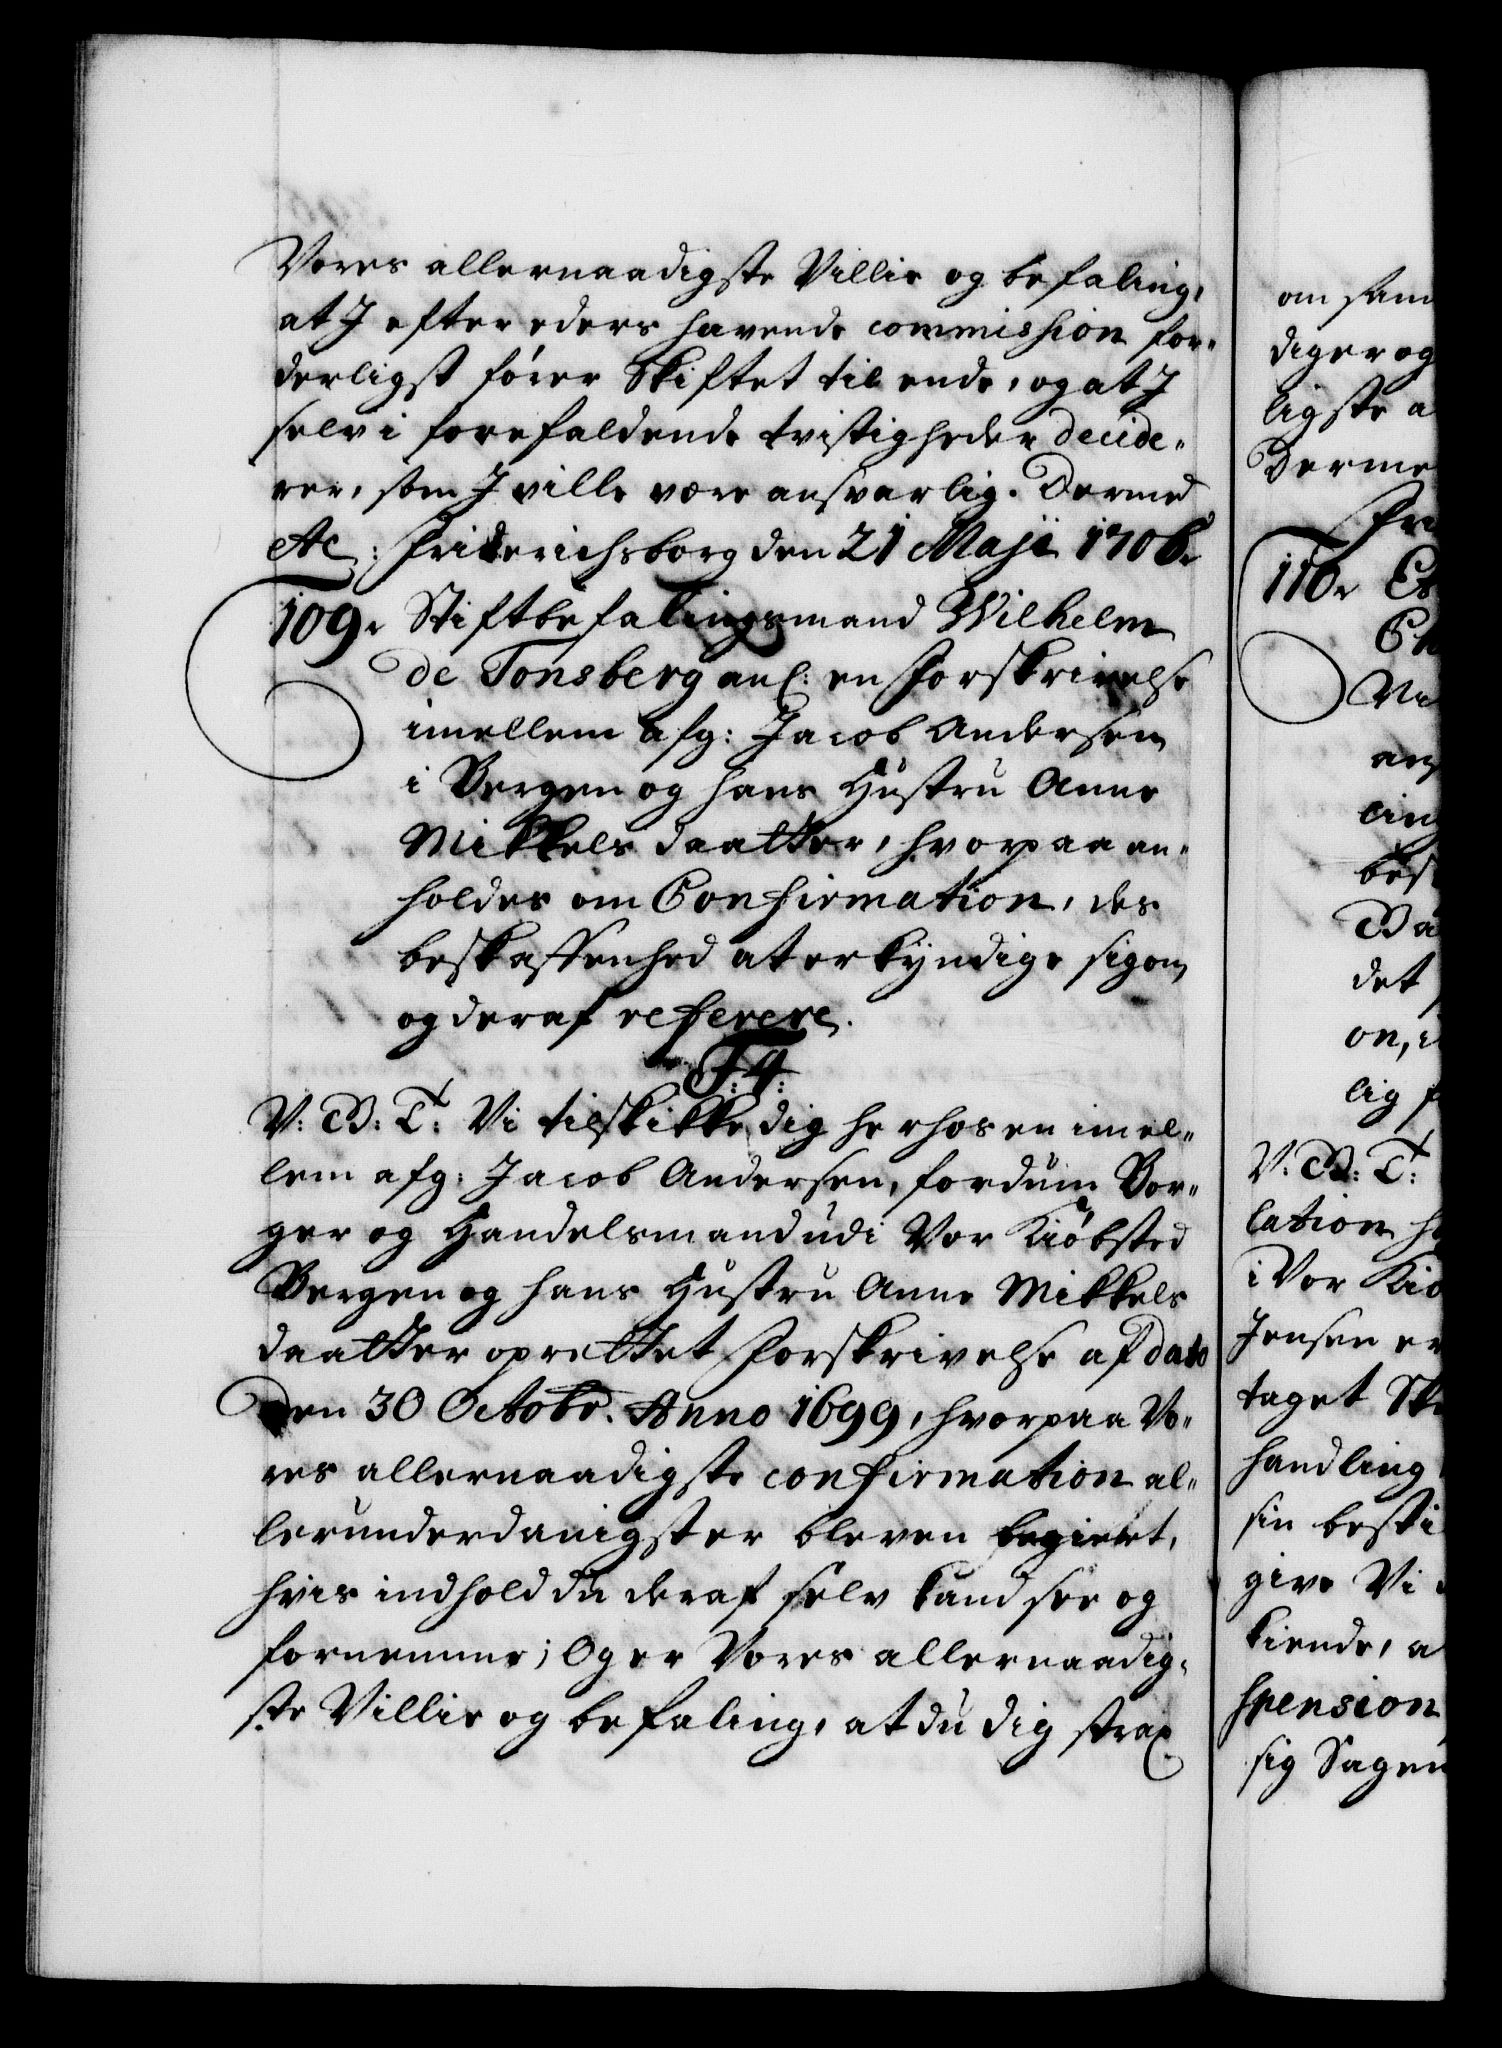 Vores allernaadigste Villie og befaling,
at I efter eders havende commishion for-
derligst fører Skiftet til ende, og at I
selv i forefaldende tvistigheder decide-
rer, som I ville være ansvarlig. Dermed
etc: Friderichsborg den 21 Maji 1706.
109. Stiftbefalingsmand Wilhelm
de Tonsberg anl: en Forskrivelse
imellem afg: Jacob Andersen
i Bergen og hans Hustru Anne
Mikkels daatter, hvorpaa an-
holdes om Confirmation, des
beskaffenhed at erkyndige sig om
og deraf referere.
F: 4:
V: B: T: Vi tilskikke dig herhos en imel-
lem afg: Jacob Andersen, fordum Bor-
ger og Handelsmand udi Vor Kiøbsted
Bergen og hans Hustru Anne Mikkels
daatter oprettet Forskrivelse af dato
den 30 Octobr. Anno 1699, hvorpaa Vo-
res allernaadigste confirmation al-
lerunderdanigst er bleven begiert,
hvis indhold du deraf selv kand see og
fornemme; Og er Vores allernaadig-
ste Villie og befaling, at du dig strax
om sam
diger og
ligste a
Derme
Fri
110.
Vi
det
on,
lig f
V: B: T:
lation
i Vor Kiø
Jensen er
taget Sk
handling
sin besti
give Vi
kiende, a
spension
sig Sagen